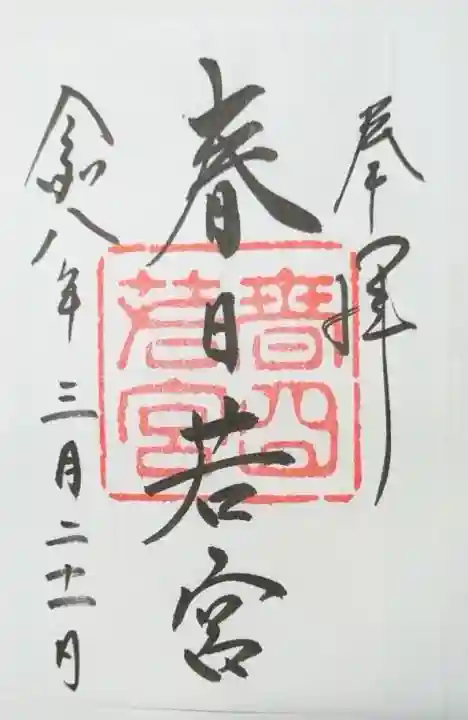 奉拝
春日若宮
春日若宮
令和八年三月二十一日